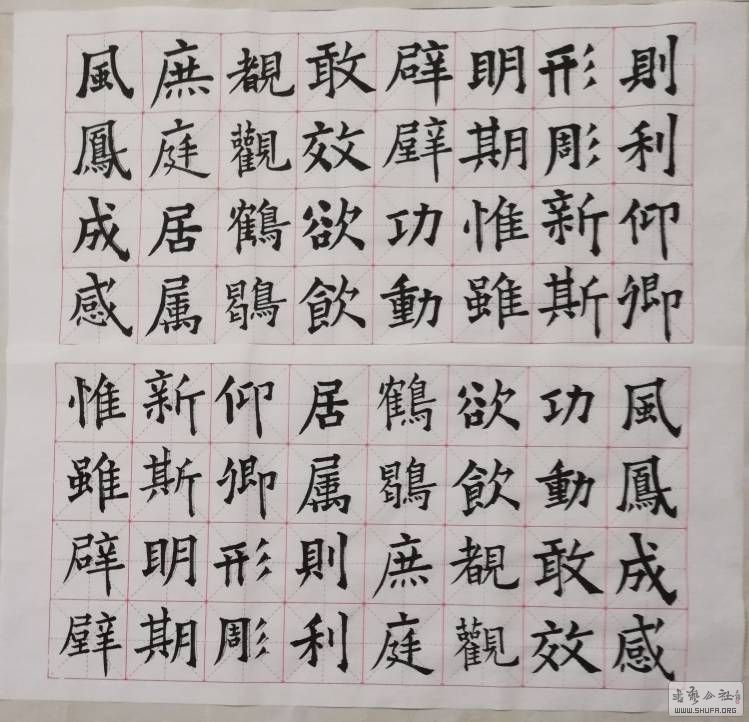 則利仰卿
形彫新斯
明期惟雖
辟壁功動
敢效欲飲
覩觀鶴鶡
庶庭居属
風鳳成感
風鳳成感
功動敢效
欲飲覩觀
鶴鶡庶庭
居属則利
仰卿形彫
新斯明期
惟雖辟壁
WWW.SHUFA.ORG